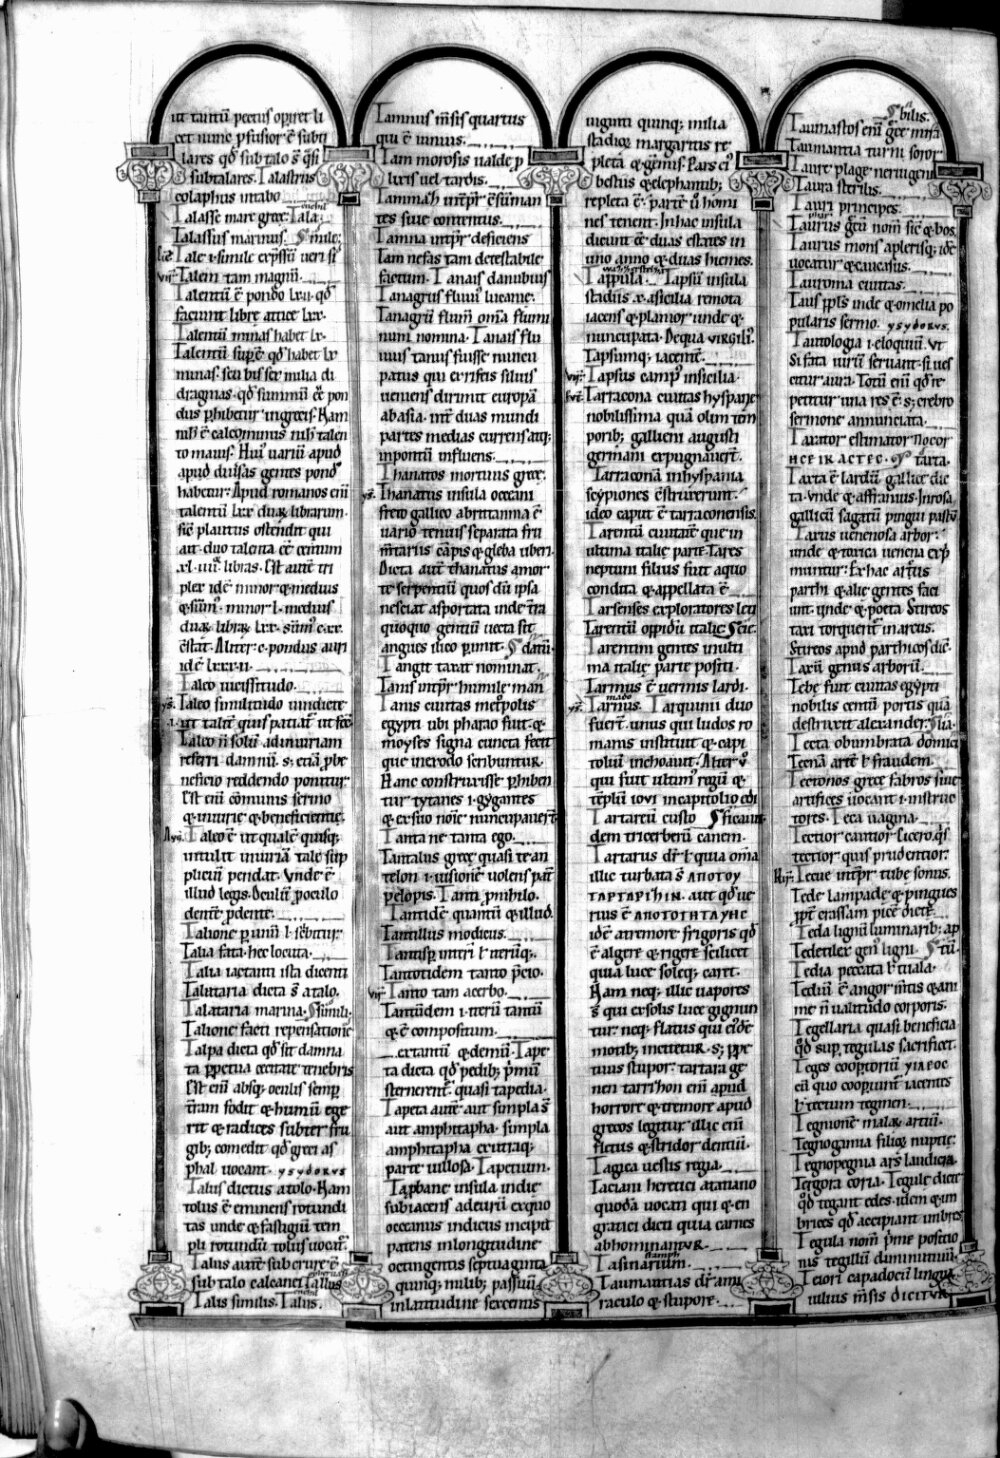 ut tantū pectus opieret li
cet nunc pfusior ē subti
lares qđ sub talo s̄ q̄si
subtalares. Talastris
colaphus intabo
Talasse mare grece. Tala
Talassus marinus.
Tale i simile expssū ueri si
Talem tam magnū.
Talentū ē pondo lxii qđ
faciunt librę attice lxx.
Talentū minas habet lx.
Talentū supē qđ habet lx
minas. seu bis sex milia di
dragmas. qđ summū eē pon
dus phibetur in grecis. Nam
nihil ē calcominus nihil talen
to maius. Hui uariū apud
apud diuisas gentes pondꝰ
habetur. Apud romanos enī
talentū lxx duaꝝ librarum.
sic plautus ostendit qui
ait. duo talenta eē centum
xl. libras. Est autē tri
plex idē minor & medius
& sūmꝰ. minor l. medius
duaꝝ libraꝝ lxx. sūmꝰ c.xx.
cstat. Aliter. c. pondus auri
idē lxxx.ii.
Taleo uicissitudo.
Taleo similitudo uindictę
ut talitē
Taleo n̄ solū ad iniuriam
referri damnū. s; etiā p be
neficio reddendo ponitur.
Est enī cōmunis sermo
& iniurię & beneficientię.
Taleo ē ut qualē quisq;
intulit iniuriā tale sup
pliciū pendat. Vnde ē
illud legis. Oculū p oculo
dentē p dente.
Talione
Talia fata. hec locuta.
Talia iactanti ista dicenti
Talutaria dicta s̄ a talo.
Talataria marina.
Talione facti repensatione
Talpa dicta qđ sit damna
ta ppetua cecitate tenebris
Est enī absq; oculis semp
terram fodit & humū ege
rit & radices subter fru
gib; comedit qđ greci as
phal uocant. ysydorvs
Talus dictus a tolo. Nam
tolus ē eminens rotundi
tas unde & fastigiū tem
pli rotundū tolus uocat̄.
Talus autē sub crure ē
sub talo calcanei Tallus
Talis similis. Talus.
Tamnus m̄sis quartus
qui ē iunius.
Tam morosis ualde p
lixis uel tardis.
Tammch intpr̄ c̄suman
tes siue contentus.
Tamna intpr̄ deficiens
Tam nefas tam detestabile
factum. Tanais danubius
Tanagrus fluuiꝰ lucanie.
Tanagrū flum̄ om̄a flumi
num nomina. Tanais flu
uius tanus fuisse nuncu
patus qui ex rifeis siluis
ueniens dirimit europā
ab asia. int̄ duas mundi
partes medias currens atq;
in pontū influens.
Thanatos mortuus grece.
Thanatus insula occeani
freto gallico a britannia ē
uario tenuis separata fru
m̄tariis cāpis & gleba uberi.
Dicta autē thanatus a mor
te serpentiū quos dū ipsa
nesciat asportata inde t̄ra
quoquo gentiū uecta sit
angues ilico pimit.
Tangit taxat nominat.
Tanis intpr̄ humile man
Tanis ciuitas met̄polis
egypti ubi pharao fuit. &
moyses signa cuncta fecit
que in exodo scribuntur.
Hanc construxisse phiben
tur tytanes i gygantes
& ex suo noīe nuncupauer̄t
Tanta ne tanta ego.
Tantalus grece quasi te an
telon i uisionē uolens pat̄
pelopis. Tanti p nihilo.
Tantidē quantū & illud.
Tantillus modicus.
Tantisp
Tantotidem tanto p̄cio.
Tanto tam acerbo.
Tantūdem i iterū tantū
& ē compositum.
certantū & demū. Tape
ta dicta qđ pedib; pmū
sternerent̄ quasi tapedia.
Tapeta autē aut simpla s̄
aut amphitapha. simpla
amphitapha ex utraq;
parte uillosa. Tapetium.
Tapbane insula indię
subiacens ad eurū ex quo
occeanus indicus incipit
patens in longitudine
octingentis septuaginta
quinq; milib; passuū
in latitudine sexcentis
uiginti quinq; milia
stadioꝝ margaritis re
pleta & gēmis. Pars eī
bestiis & elephantib;
repleta ē. partē ū homi
nes tenent. In hac insula
dicunt eē duas estates in
uno anno & duas hiemes.
Tappula. Tapsū insula
stadiis x. a sicilia remota
iacens & planior unde &
nuncupata. De qua virgiliꝰ.
Tapsumq; iacentē.
Tapsus campꝰ in sicilia.
Tarracona ciuitas hyspanie
nobilissima quā olim tem
porib; gallieni augusti
germani expugnauer̄t.
Tarraconā in hyspania
scypiones c̄struxerunt.
ideo caput ē tarraconensis.
Tarentū ciuitatē que in
ultima italie parte. Tares
neptuni filius fuit a quo
condita & appellata ē
Tarsenses exploratores leti
Tarentū oppidū italię
Tarentini gentes in ulti
ma italię parte positi.
Tarmus ē uermis lardi.
Tarnus. Tarquinii duo
fuert̄. unus qui ludos ro
manis instituit & capi
toliū inchoauit. Alter ū
qui fuit ultimꝰ regū &
tēplū ioui in capitolio cdi
Tartareū custo
dem tricerberū canem.
Tartarus dr̄ l quia om̄a
illic turbata s̄ ΑΠΟΤΟΥ
ΤΑΡΤΑΡΙΖΙΝ. aut qđ ue
rius ē ΑΠΟΤΟΙΗΤΑΥΗC
idē a tremore frigoris qđ
ē algere & rigere scilicet
quia luce soleq; caret.
Nam neq; illic uapores
s̄ qui ex solis luce gignun
tur. neq; flatus qui ei̅de
motib; incitetur. s; ppe
tuus stupor. tartara ge
nen tarizhon enī apud
horrore & tremore apud
grecos legitur illic enī
fletus & stridor dentiū.
Tagica uestis regia.
Taciani heretici a tatiano
quodā uocati qui & en
gratici dicti quia carnes
abhominantvr.
Tasinarium.
Taumantias dr̄ a mi
raculo & stupore.
bilis.
Taumastos enī gece mira
Taumantia turni soror
Taure plage neruigeni
Taura sterilis.
Tauri principes.
Taurus gr̄cū nom̄ sic & bos.
Taurus mons a plerisq; idē
uocatur & caucasus.
Tauroma ciuitas.
Taus ppls inde & omelia po
pularis sermo. ysydorvs.
Tautologia i eloquiū. Vt
Si fata uirū seruant. si ues
citur aura. Totū enī qđ re
petitur una res ē. s; crebro
sermone annunciata.
Taxator estimator
Taxta ē lardū gallice dic
ta. Vnde & affranius. In rosa
gallicū sagatū pingui pastū
Taxus uenenosa arbor
unde & toxica uenena exp
muntur. Ex hac arcus
parthi & alie gentes faci
unt. unde & poeta. Stireos
taxi torquent̄ in arcus.
Stireos apud parthicos dic̄.
Taxū genus arborū.
Tebe fuit ciuitas egypti
nobilis centū portis quā
destruxit alexander.
Tecta obumbrata domici
Tecnā artē l fraudem.
Tectonos grece fabros siue
artifices uocant i instruc
tores. Teca uagina.
Tectior cautior. Cicero. q̄s
tectior quis prudentior.
Tecue intpr̄ tube sonus.
Tede lampade & pingues
ppt̄ crassam picē dictę
Teda lignū luminarib; ap
Tedetilex genꝰ ligni.
Tedia peccata l tuala.
Tediū ē angor m̄tis & ani
me n̄ ualitudo corporis.
Tegellaria quasi beneficia
qđ sup tegulas sacrificet.
Teges coopertoriū
cū quo coopiunt̄ iacentes
l tectum tegmen.
Tegnionē malaꝝ artiū.
Tegnogamia filioꝝ nuptię.
Tegnopegnia ars laudicia.
Tergora coria. Tegule dictę
qđ tegant edes. idem & im
brices qđ accipiant imbres
Tegula nom̄ p̄me positio
nis tegillū diminutiuū.
Teiori capadociū lingua
iulius m̄sis dicitvr